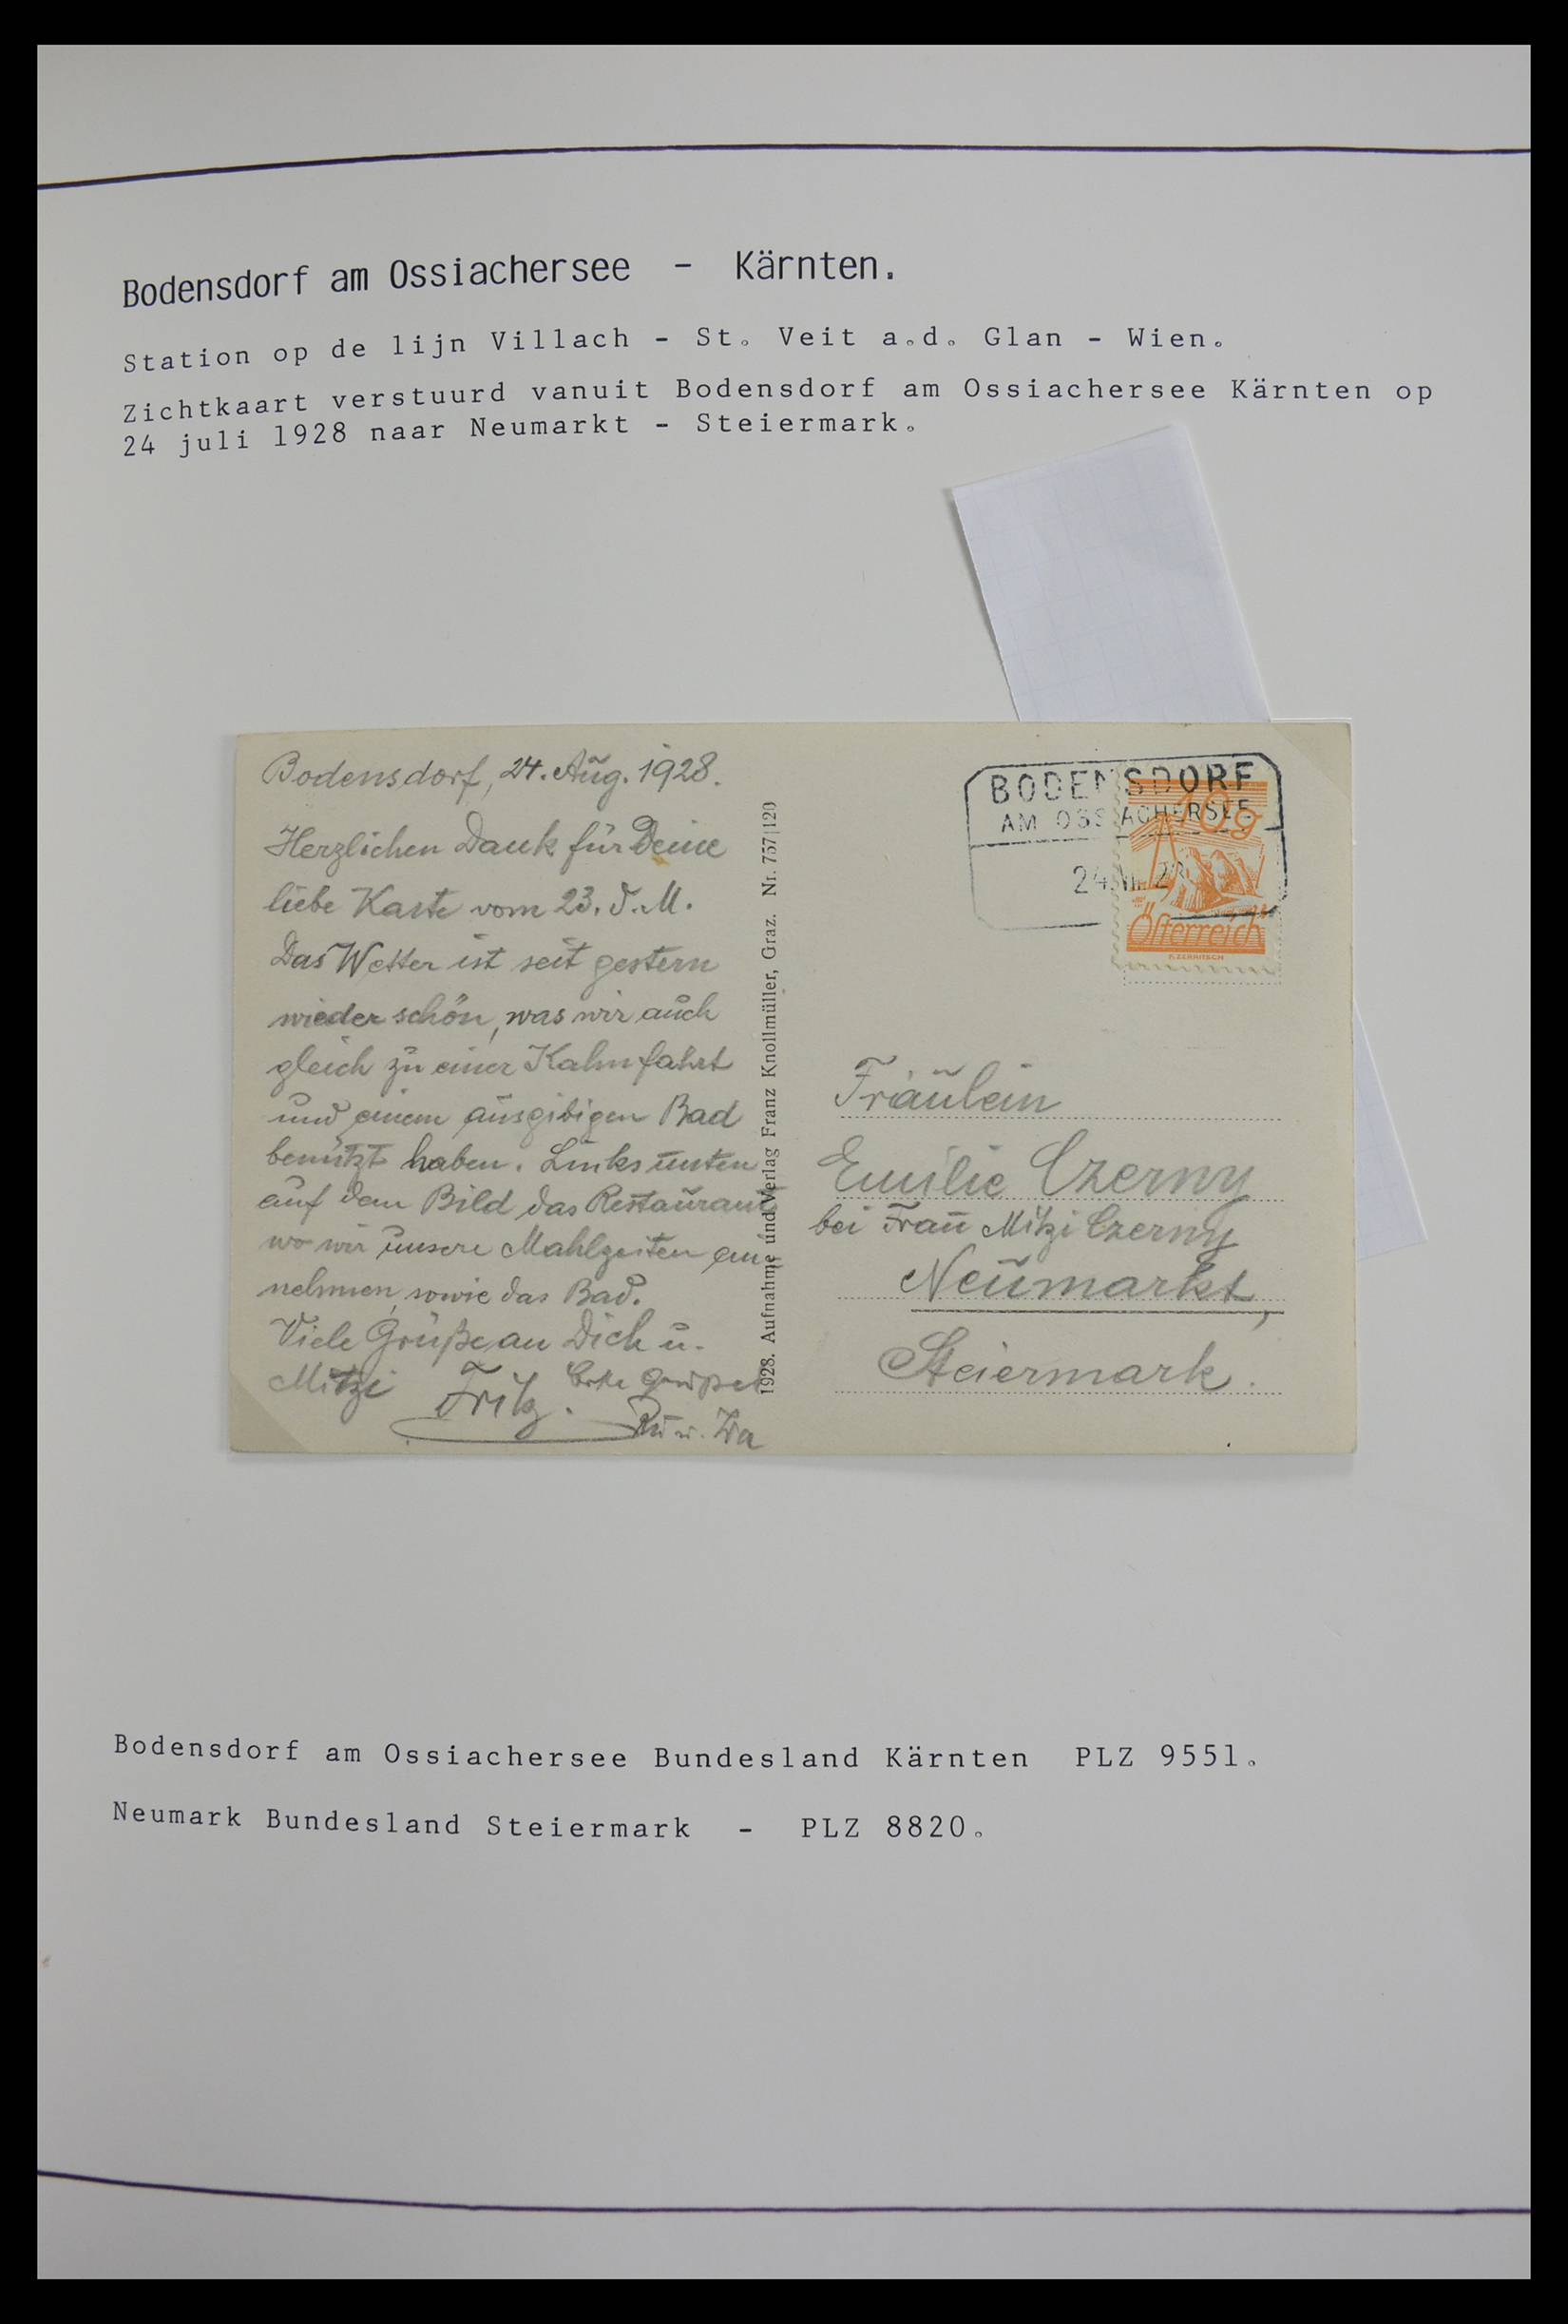 Bodensdorf am Ossiachersee - Kärnten.
Station op de lijn Villach - St. Veit a.d. Glan - Wien.
Zichtkaart verstuurd vanuit Bodensdorf am Ossiachersee Kärnten op
24 juli 1928 naar Neumarkt - Steiermark.
Bodensdorf, 24. Aug. 1928.
Herzlichen Dank für Deine
liebe Karte vom 23. d. M.
Das Wetter ist seit gestern
wieder schön, was wir auch
gleich zu einer Kahnfahrt
und einem ausgibigen Bad
benützt haben. Links unten
auf dem Bild das Restaurant
wo wir unsere Mahlzeiten ein
nehmen, sowie das Bad.
Viele Grüße an Dich u.
Mitzi Fritz.
1928. Aufnahme und Verlag Franz Knollmüller, Graz. Nr. 757/120
BODENSDORF
AM OSSIACHERSEE
24
10g
Österreich
Fräulein
Emilie Czerny
bei Frau Mitzi Czerny
Neumarkt,
Steiermark.
Bodensdorf am Ossiachersee Bundesland Kärnten PLZ 9551.
Neumark Bundesland Steiermark - PLZ 8820.